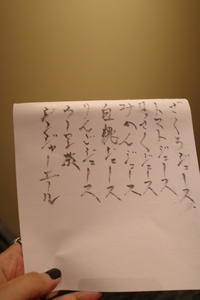 ざくろジュース
トマトジュース
はっさくジュース
みかんジュース
白桃ジュース
りんごジュース
ウーロン茶
ジンジャーエール